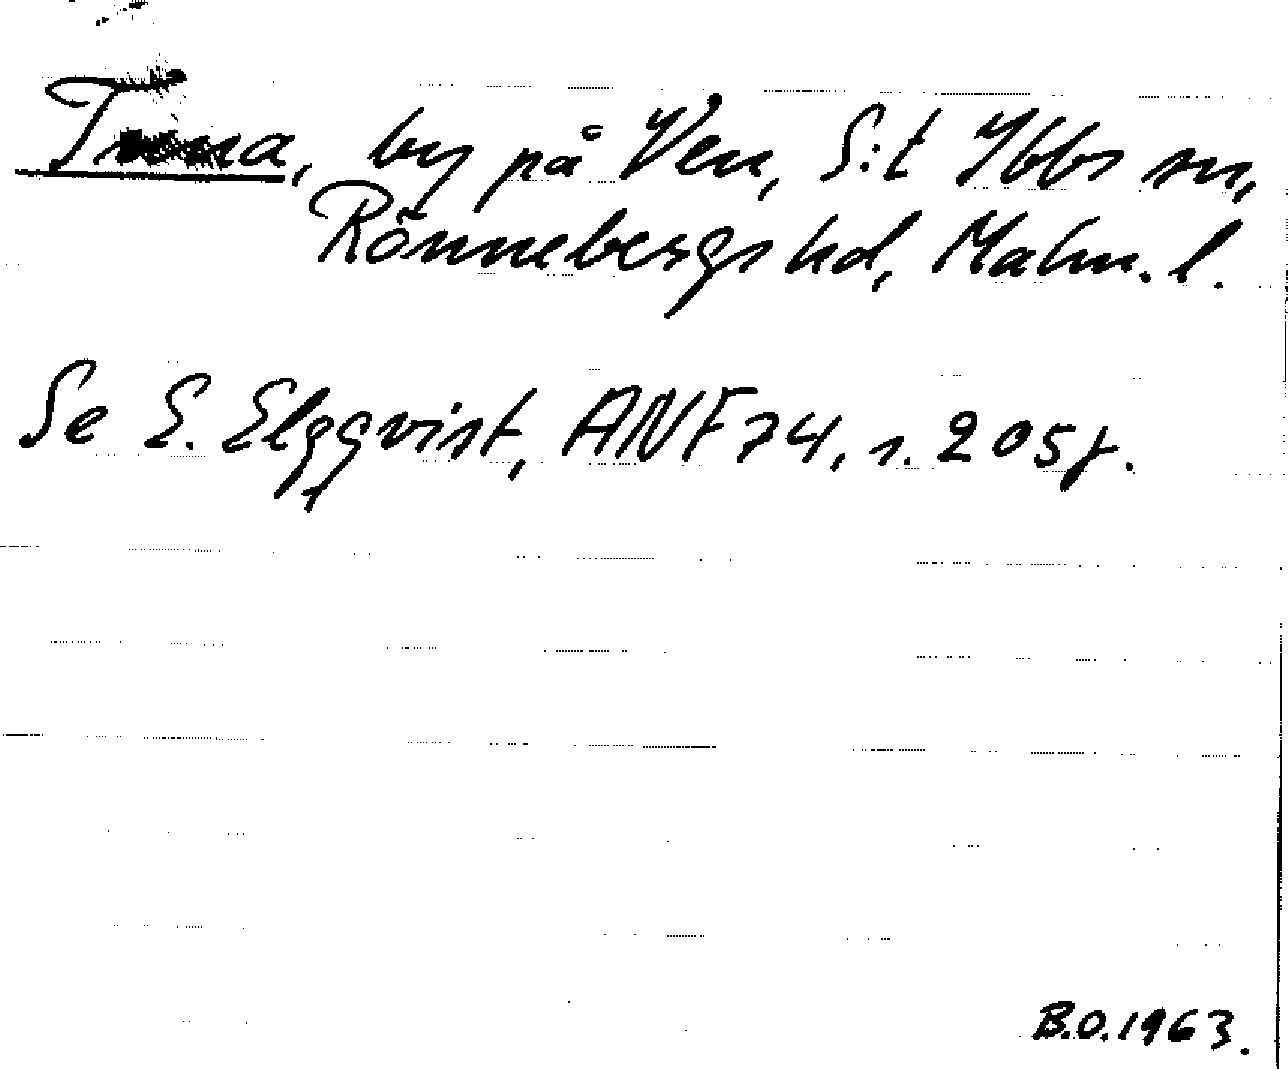 by på Ven, S:t Ibbs sn,
Rönnebergs hd, Malm. l.
Se E. Elgqvist, ANF 74, s. 205 f.
B.O. 1963.